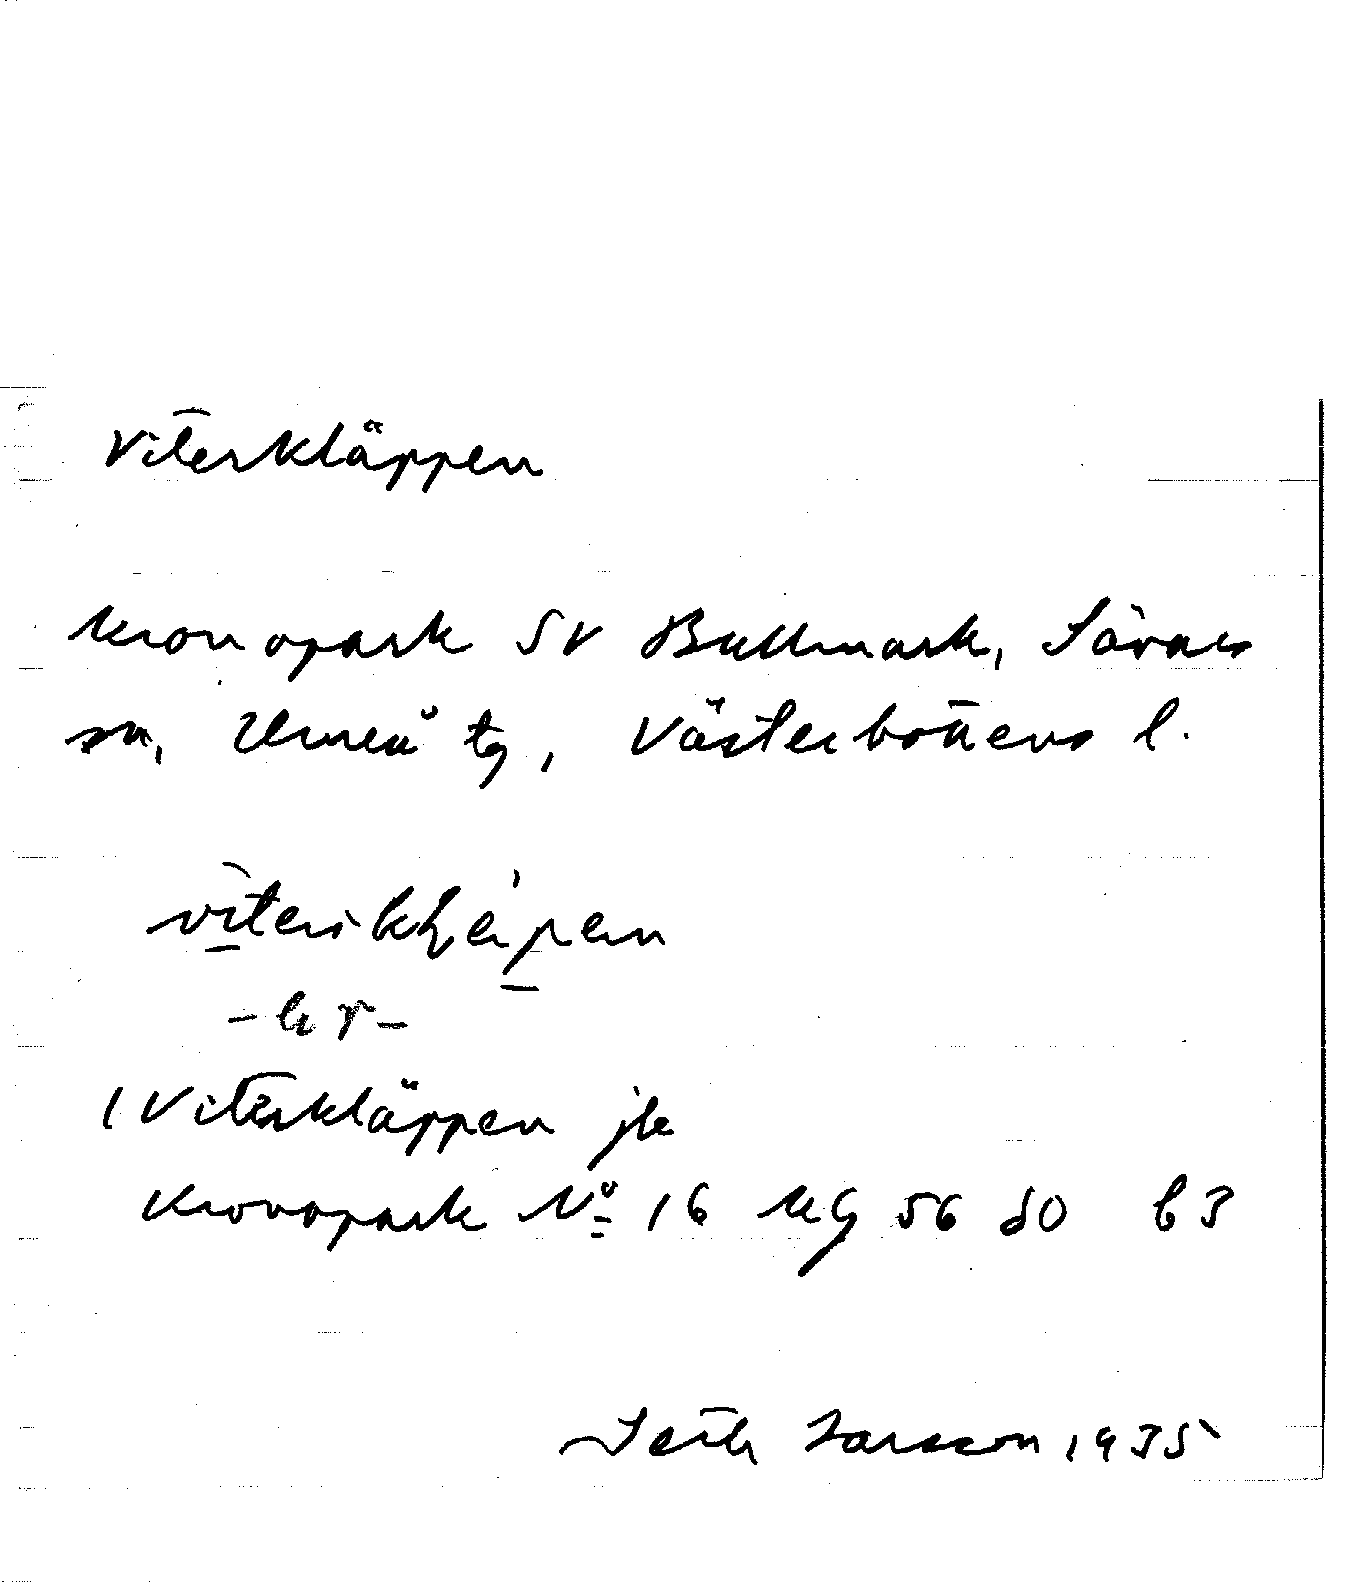 Viterkläppen
kronopark SV Bullmark, Sävars
sn, Umeå tg, Västerbottens l.
(Viterkläppen jb
Kronopark No 16 KG 56 80 63
Seth Larsson 1935